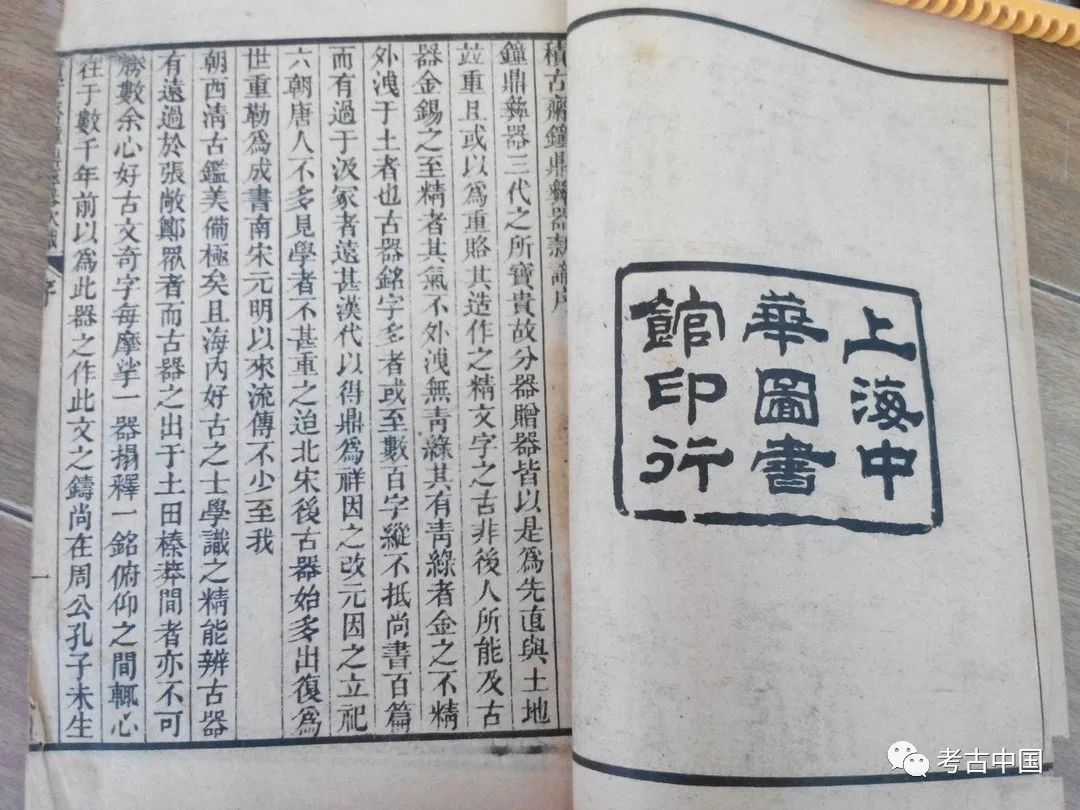 上海中
華圖書
館印行
積古齋鐘鼎彝器款識序
鐘鼎彝器三代之所寶貴故分器贈器皆以是爲先直與土地
竝重且或以爲重賂其造作之精文字之古非後人所能及古
器金錫之至精者其氣不外洩無青綠其有青綠者金之不精
外洩于土者也古器銘字多者或至數百字縱不抵尚書百篇
而有過于汲冢者遠甚漢代以得鼎爲祥因之改元因之立祀
六朝唐人不多見學者不甚重之迨北宋後古器始多出復爲
世重勒爲成書南宋元明以來流傳不少至我
朝西清古鑑美備極矣且海內好古之士學識之精能辨古器
有遠過於張敞鄭眾者而古器之出于土田榛莽間者亦不可
勝數余心好古文奇字每摩挲一器搨釋一銘俯仰之間輒心
往于數千年前以爲此器之作此文之鑄尚在周公孔子未生
序
一
考古中国